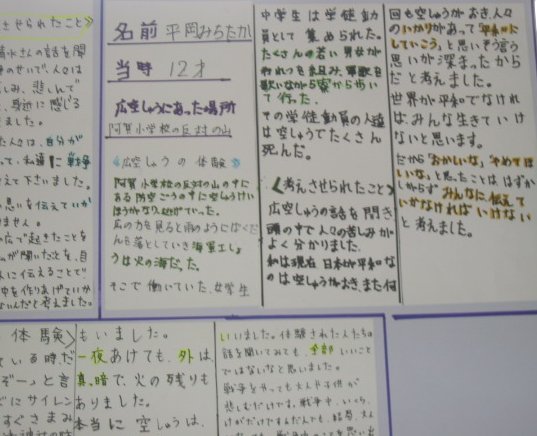 させられたこと》
清水さんの話を聞
のせいで、人々は
しみ、悲しんで
、身近に感じる
ました。
人々は、自分が
って、私達に戦争
えて下さいました。
思いを伝えていか
ません。
広で起きたことを
が聞いたことを、自
人に伝えることで
中を作りあげていか
ないんだと考えました。
名前 平岡みちたか
当時 12才
広空しゅうにあった場所
阿賀小学校の反対の山
《広空しゅうの体験》
阿賀小学校の反対の山の中に
ある防空ごうの中に空しゅうけい
ほうがなりにげていった。
広の方を見ると雨のようになくだ
んを落としていき海軍工しょ
うは火の海だった。
そこで働いていた、女学生
中学生は学徒動
員として集められた。
たくさんの若い男女が
われつを組み、軍歌を
歌いながら寮から歩い
て行った。
その学徒動員の人達
は空しゅうでたくさん
死んだ。
《考えさせられたこと》
広空しゅうの話を聞き
頭の中で人々の苦しみが
よく分かりました。
私は現在日本が平和な
のは空しゅうがおき、また何
回も空しゅうがおき、人々
のいかりがあって「平和に
していこう」と思いぞう言う
思いが深まったから
だと考えました。
世界が平和でなけれ
ばみんな生きていけ
ないと思います。
だから「おかしいな」「やめてほ
しいな」と思ったことは はずか
しがらず みんなに伝えて
いかなければ いけない
と考えました。
体験》
ている時だ
ぞーっと言
ぐにサイレン
すぐさまみ
もいました。
一夜あけても、外は
真っ暗で、火の残りも
ありました。
本当に空しゅうは、
いいました。体験された人たちの
話を聞いてみても、全部いいこと
ではないなと思いました。
戦争をやっても大人や子供が
悲しむだけです。戦争中、いくら